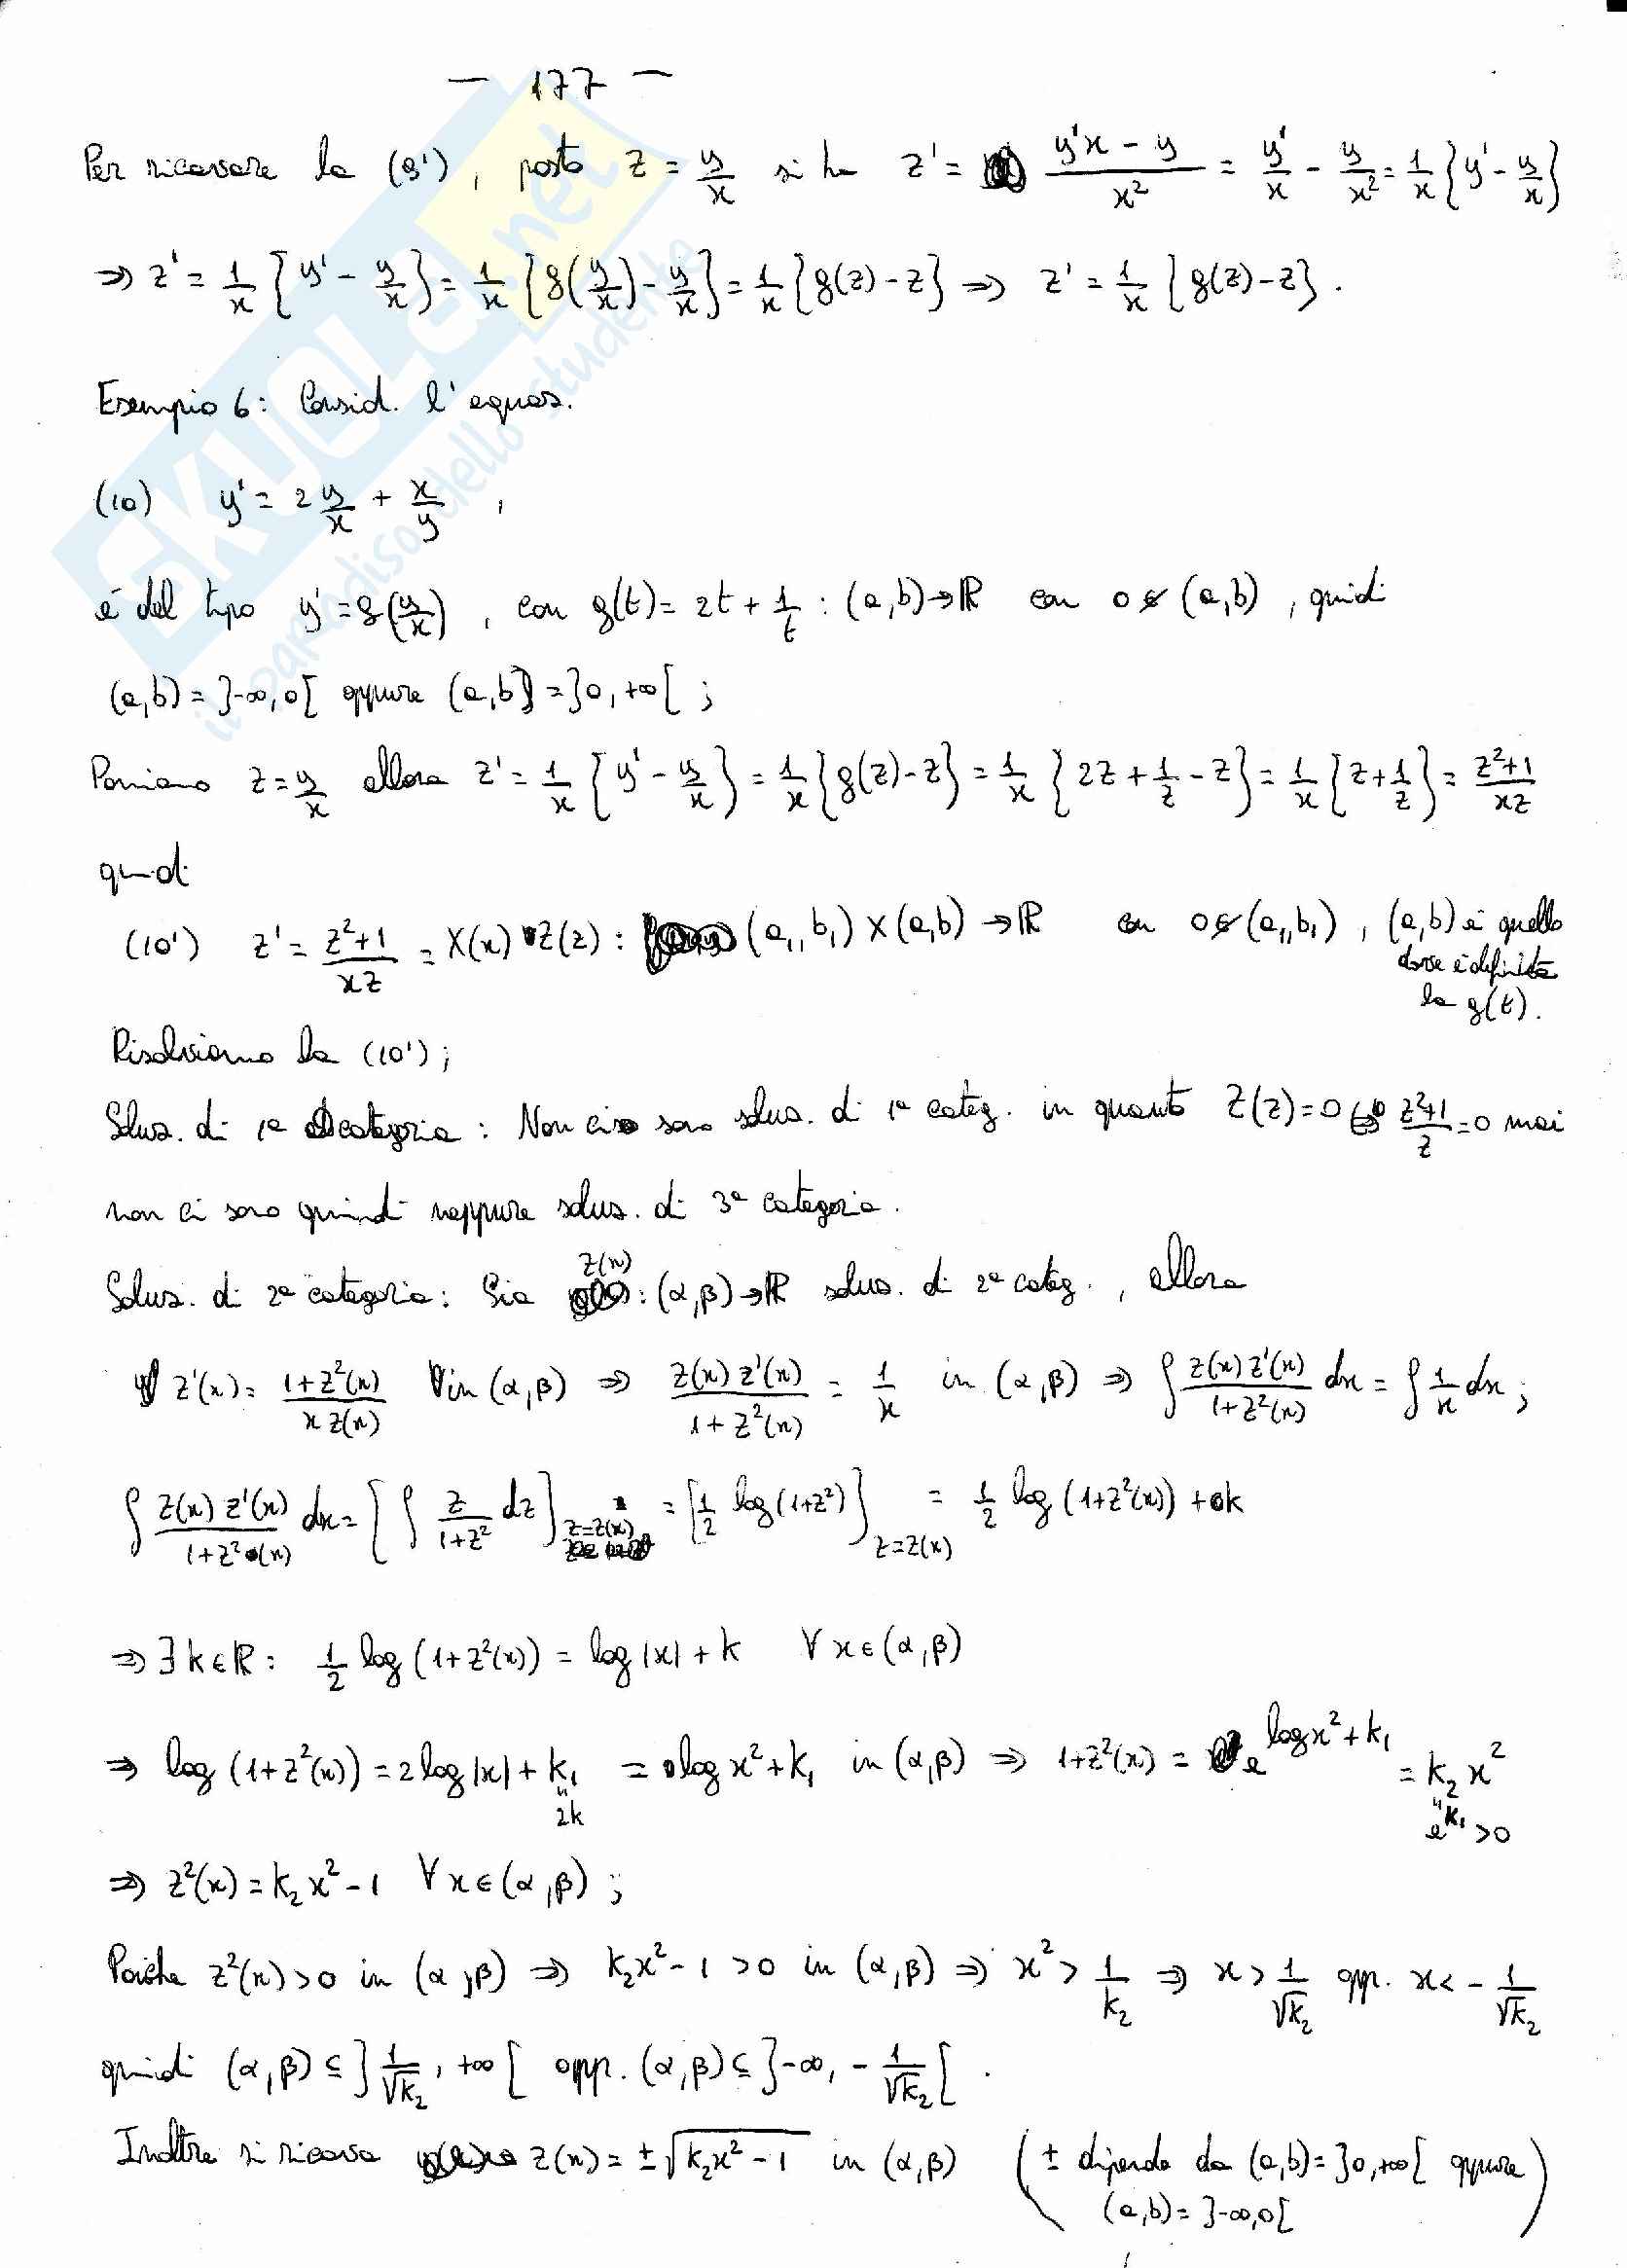 — 177 —
Per ricavare la (9'), posto z = y/x si ha z' = (y'x - y)/x² = y'/x - y/x² = 1/x {y' - y/x}
⇒ z' = 1/x {y' - y/x} = 1/x {g(y/x) - y/x} = 1/x {g(z) - z} ⇒ z' = 1/x {g(z) - z}.
Esempio 6: Consid. l'equaz.
(10) y' = 2 y/x + x/y ,
è del tipo y' = g(y/x), con g(t) = 2t + 1/t : (a,b) → ℝ con 0 ∉ (a,b), quindi
(a,b) = ]-∞,0[ oppure (a,b) = ]0,+∞[ ;
Poniamo z = y/x allora z' = 1/x {y' - y/x} = 1/x {g(z) - z} = 1/x {2z + 1/z - z} = 1/x {z + 1/z} = (z²+1)/(xz)
quindi
(10') z' = (z²+1)/(xz) = X(x) Z(z) : (a₁,b₁) × (a,b) → ℝ con 0 ∉ (a₁,b₁), (a,b) è quello
dove è definita
la g(t).
Risolviamo la (10') ;
Soluz. di 1ª categoria: Non ci sono soluz. di 1ª categ. in quanto Z(z) = 0 ⇔ (z²+1)/z = 0 mai
non ci sono quindi neppure soluz. di 3ª categoria.
Soluz. di 2ª categoria: Sia z(x) : (α,β) → ℝ soluz. di 2ª categ., allora
z'(x) = (1+z²(x))/(x z(x)) in (α,β) ⇒ (z(x) z'(x))/(1+z²(x)) = 1/x in (α,β) ⇒ ∫ (z(x) z'(x))/(1+z²(x)) dx = ∫ 1/x dx ;
∫ (z(x) z'(x))/(1+z²(x)) dx = [∫ z/(1+z²) dz]_{z=z(x)} = [1/2 log(1+z²)]_{z=z(x)} = 1/2 log(1+z²(x)) + k
⇒ ∃ k ∈ ℝ : 1/2 log(1+z²(x)) = log|x| + k ∀ x ∈ (α,β)
⇒ log(1+z²(x)) = 2 log|x| + k₁ = log x² + k₁ in (α,β) ⇒ 1+z²(x) = e^{log x² + k₁} = k₂ x²
" 2k " e^{k₁} > 0
⇒ z²(x) = k₂x² - 1 ∀ x ∈ (α,β) ;
Poiché z²(x) > 0 in (α,β) ⇒ k₂x² - 1 > 0 in (α,β) ⇒ x² > 1/k₂ ⇒ x > 1/√k₂ opp. x < - 1/√k₂
quindi (α,β) ⊆ ]1/√k₂, +∞[ opp. (α,β) ⊆ ]-∞, - 1/√k₂[ .
Inoltre si ricava z(x) = ±√(k₂x² - 1) in (α,β) (± dipende da (a,b) = ]0,+∞[ oppure
(a,b) = ]-∞,0[ )
SKUOLA.net
il paradiso dello studente